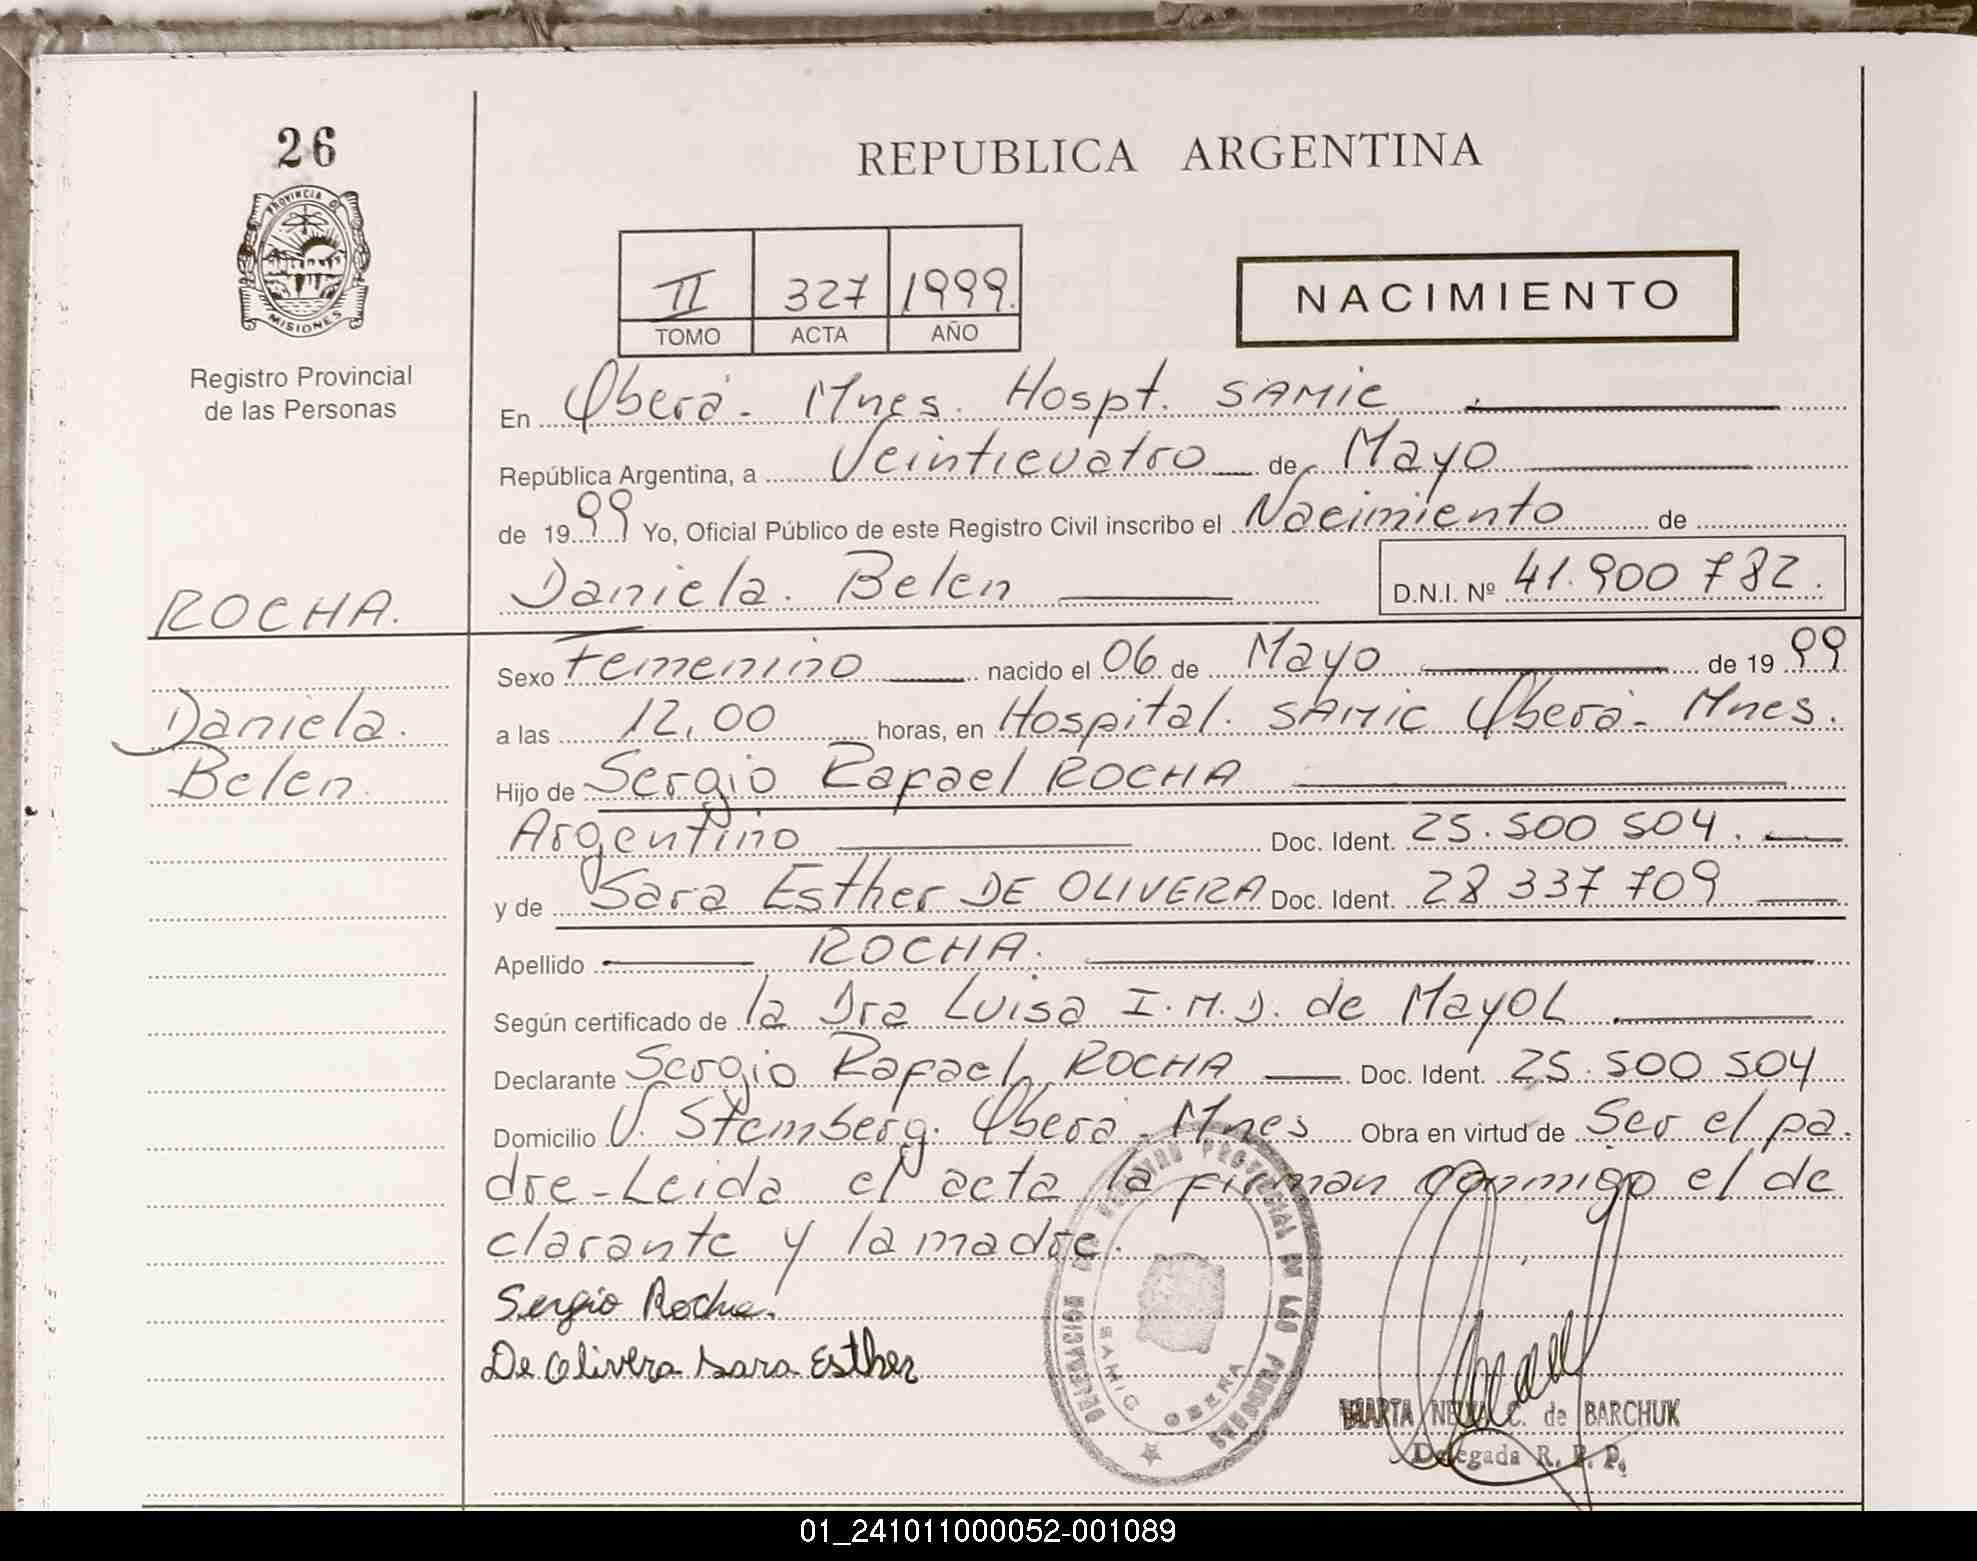 26
REPUBLICA ARGENTINA
PROVINCIA D
MISIONES
Registro Provincial
de las Personas
II 327 1999.
TOMO ACTA AÑO
NACIMIENTO
En Oberá - Mnes. Hospt. SAMIC
República Argentina, a Veinticuatro de Mayo
de 1999 Yo, Oficial Público de este Registro Civil inscribo el Nacimiento de
Daniela. Belen D.N.I. Nº 41.900 782.
ROCHA.
Daniela.
Belen.
Sexo Femenino nacido el 06 de Mayo de 1999
a las 12,00 horas, en Hospital. SAMIC Oberá - Mnes.
Hijo de Sergio Rafael ROCHA
Argentino Doc. Ident. 25.500 504.
y de Sara Esther DE OLIVERA Doc. Ident. 28 337 709
Apellido ROCHA.
Según certificado de la Dra Luisa I.M.D. de MayOL
Declarante Sergio Rafael ROCHA Doc. Ident. 25.500 504
Domicilio V. Stemberg. Oberá - Mnes Obra en virtud de Ser el pa.
dre - Leida el acta la firman conmigo el de
clarante y la madre.
Sergio Rocha.
De Olivera Sara Esther
DELEGACION REGISTRO PROVINCIAL DE LAS PERSONAS
SAMIC OBERA
MARTA C. de BARCHUK
Delegada R. P. P.
01_241011000052-001089